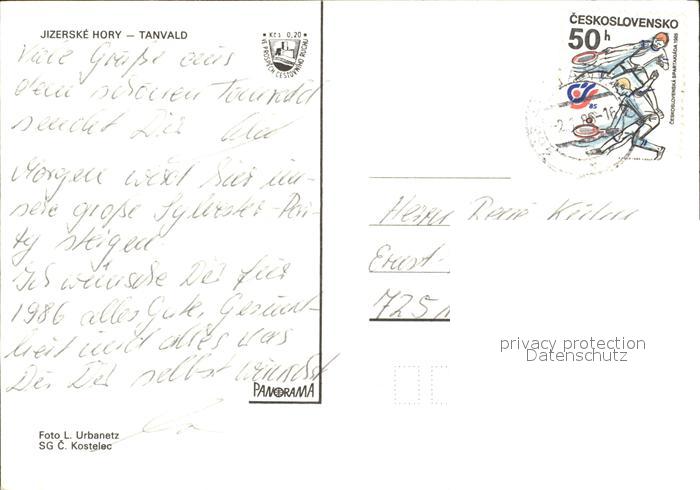 JIZERSKÉ HORY — TANVALD
Kčs 0,20
VE PROSPĚCH CESTOVNÍHO RUCHU
Viele Grüße aus
dem schönen Tanvald
sendet Dir
Morgen wird hier un-
sere große Sylvester-Par-
ty steigen.
Ich wünsche Dir für
1986 alles Gute, Gesund-
heit und alles was
Du Dir selbst wünschst
PANORAMA
Foto L. Urbanetz
SG Č. Kostelec
ČESKOSLOVENSKO
50 h
ČESKOSLOVENSKÁ SPARTAKIÁDA 1985
85
Herrn René Kühn
Ernst-
725
privacy protection
Datenschutz